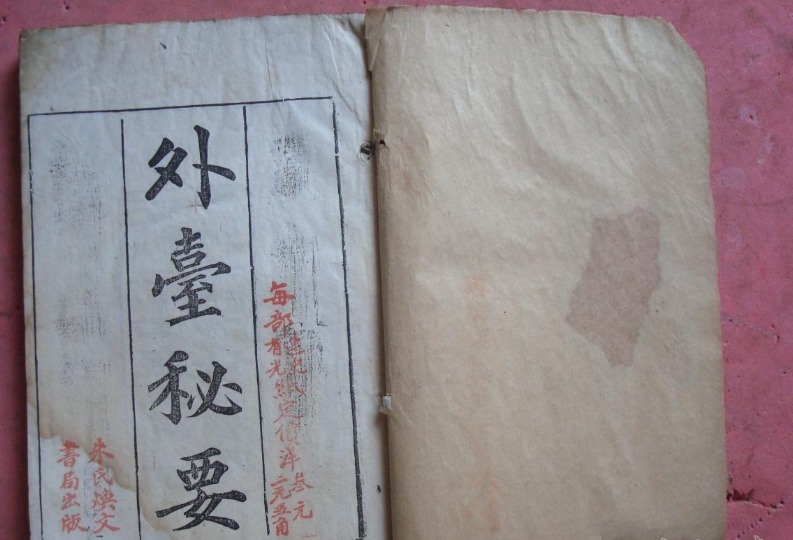 每部
有光
紙定價洋
叁元
二元五角
外臺秘要
朱氏煥文
書局出版